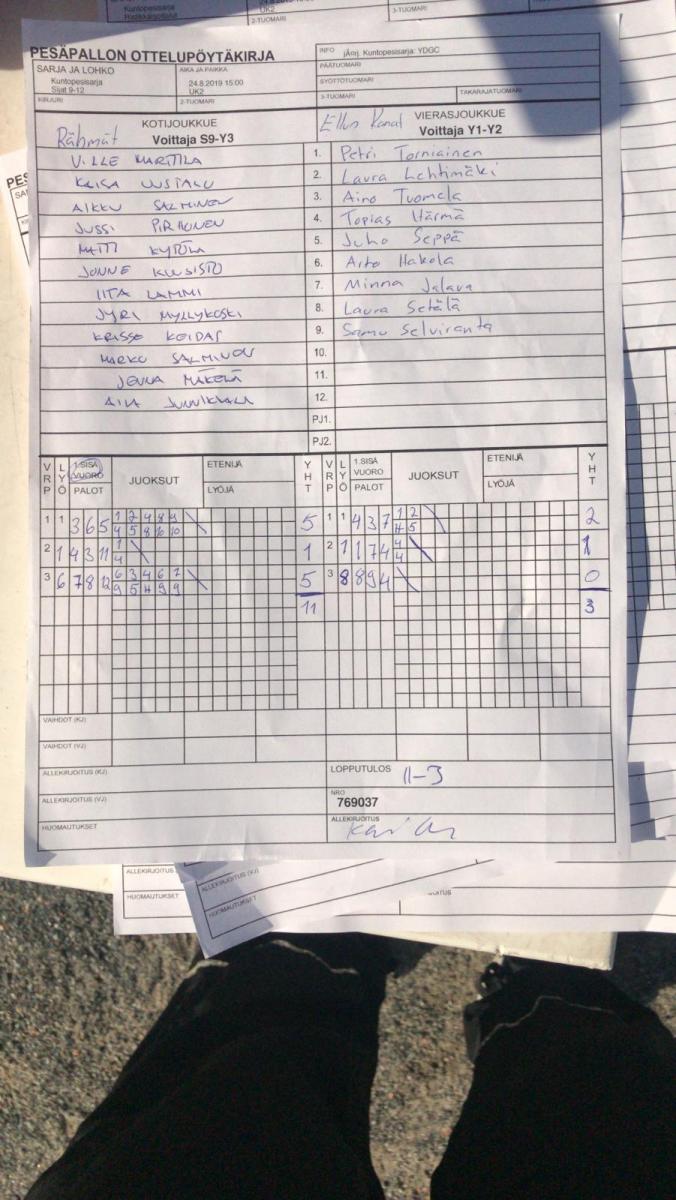 Kuntopesisarja
Ristikkäisottelut
24.8.2019 15:00
UK2
2-TUOMARI
3-TUOMARI
PESÄPALLON OTTELUPÖYTÄKIRJA
INFO jÄnj. Kuntopesisarja: YDGC
PÄÄTUOMARI
SARJA JA LOHKO
Kuntopesisarja
Sijat 9-12
AIKA JA PAIKKA
24.8.2019 15:00
UK2
SYÖTTÖTUOMARI
KIRJURI
2-TUOMARI
3-TUOMARI
TAKARAJATUOMARI
KOTIJOUKKUE
Rähmät Voittaja S9-Y3
VIERASJOUKKUE
Ellun Kanat Voittaja Y1-Y2
VILLE MARTTILA 1. Petri Torniainen
KAISA UUSTALU 2. Laura Lehtimäki
AIKKU SALMINEN 3. Aino Tuomela
JUSSI PIRHONEN 4. Topias Härmä
MATTI KYTÖLÄ 5. Juho Seppä
JONNE KUUSISTO 6. Arto Hakola
IITA LAMMI 7. Minna Jalava
JYRI MYLLYKOSKI 8. Laura Setälä
KRISSE KOIDAS 9. Samu Selviranta
MARKO SALMINEN 10.
JENNA MÄKELÄ 11.
AINA JUNNIKKALA 12.
PJ1.
PJ2.
VRP LYÖ 1.SISÄ VUORO PALOT JUOKSUT ETENIJÄ LYÖJÄ YHT VRP LYÖ 1.SISÄ VUORO PALOT JUOKSUT ETENIJÄ LYÖJÄ YHT
1 1 3 6 5 1 2 4 8 9 5 1 1 4 3 7 1 2 2
4 5 8 10 10 4 5
2 1 4 3 11 1 1 2 1 1 7 4 4 1
4 4
3 6 7 8 12 6 3 4 6 7 5 3 8 8 9 4 0
9 5 4 9 9
11 3
VAIHDOT (KJ)
VAIHDOT (VJ)
ALLEKIRJOITUS (KJ)
LOPPUTULOS 11-3
ALLEKIRJOITUS (VJ)
NRO
769037
HUOMAUTUKSET
ALLEKIRJOITUS
ALLEKIRJOITUS (VJ)
ALLEKIRJOITUS (KJ)
HUOMAUTUKSET
HUOMAUTUKSET